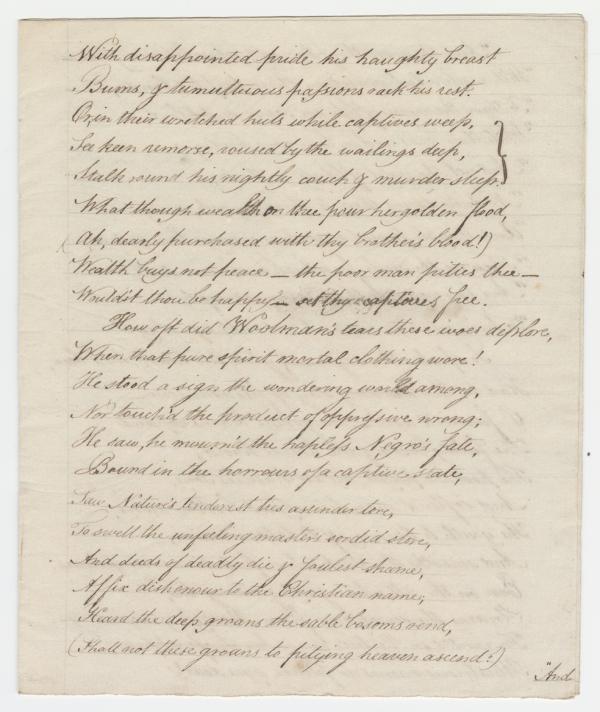 With disappointed pride his haughty breast
Burns, & tumultuous passions rack his rest.
Or, in their wretched huts while captives weep,
See keen remorse, roused by the wailings deep,
Stalk round his nightly couch & murder sleep.
What though wealth on thee pour her golden flood,
(Ah, dearly purchased with thy brother's blood!)
Wealth buys not peace — the poor man pities thee —
Would'st thou be happy — set thy captives free.
How oft did Woolman's tears these woes deplore,
When that pure spirit mortal clothing wore!
He stood a sign the wondering world among,
Nor touch'd the product of oppressive wrong;
He saw, he mourn'd the hapless Negro's fate,
Bound in the horrours of a captive state,
Saw Nature's tenderest ties asunder tore,
To swell the unfeeling master's sordid store,
And deeds of deadly die & foulest shame,
Affix dishonour to the Christian name;
Heard the deep groans the sable bosoms rend,
(Shall not these groans to pitying heaven ascend?)
"And